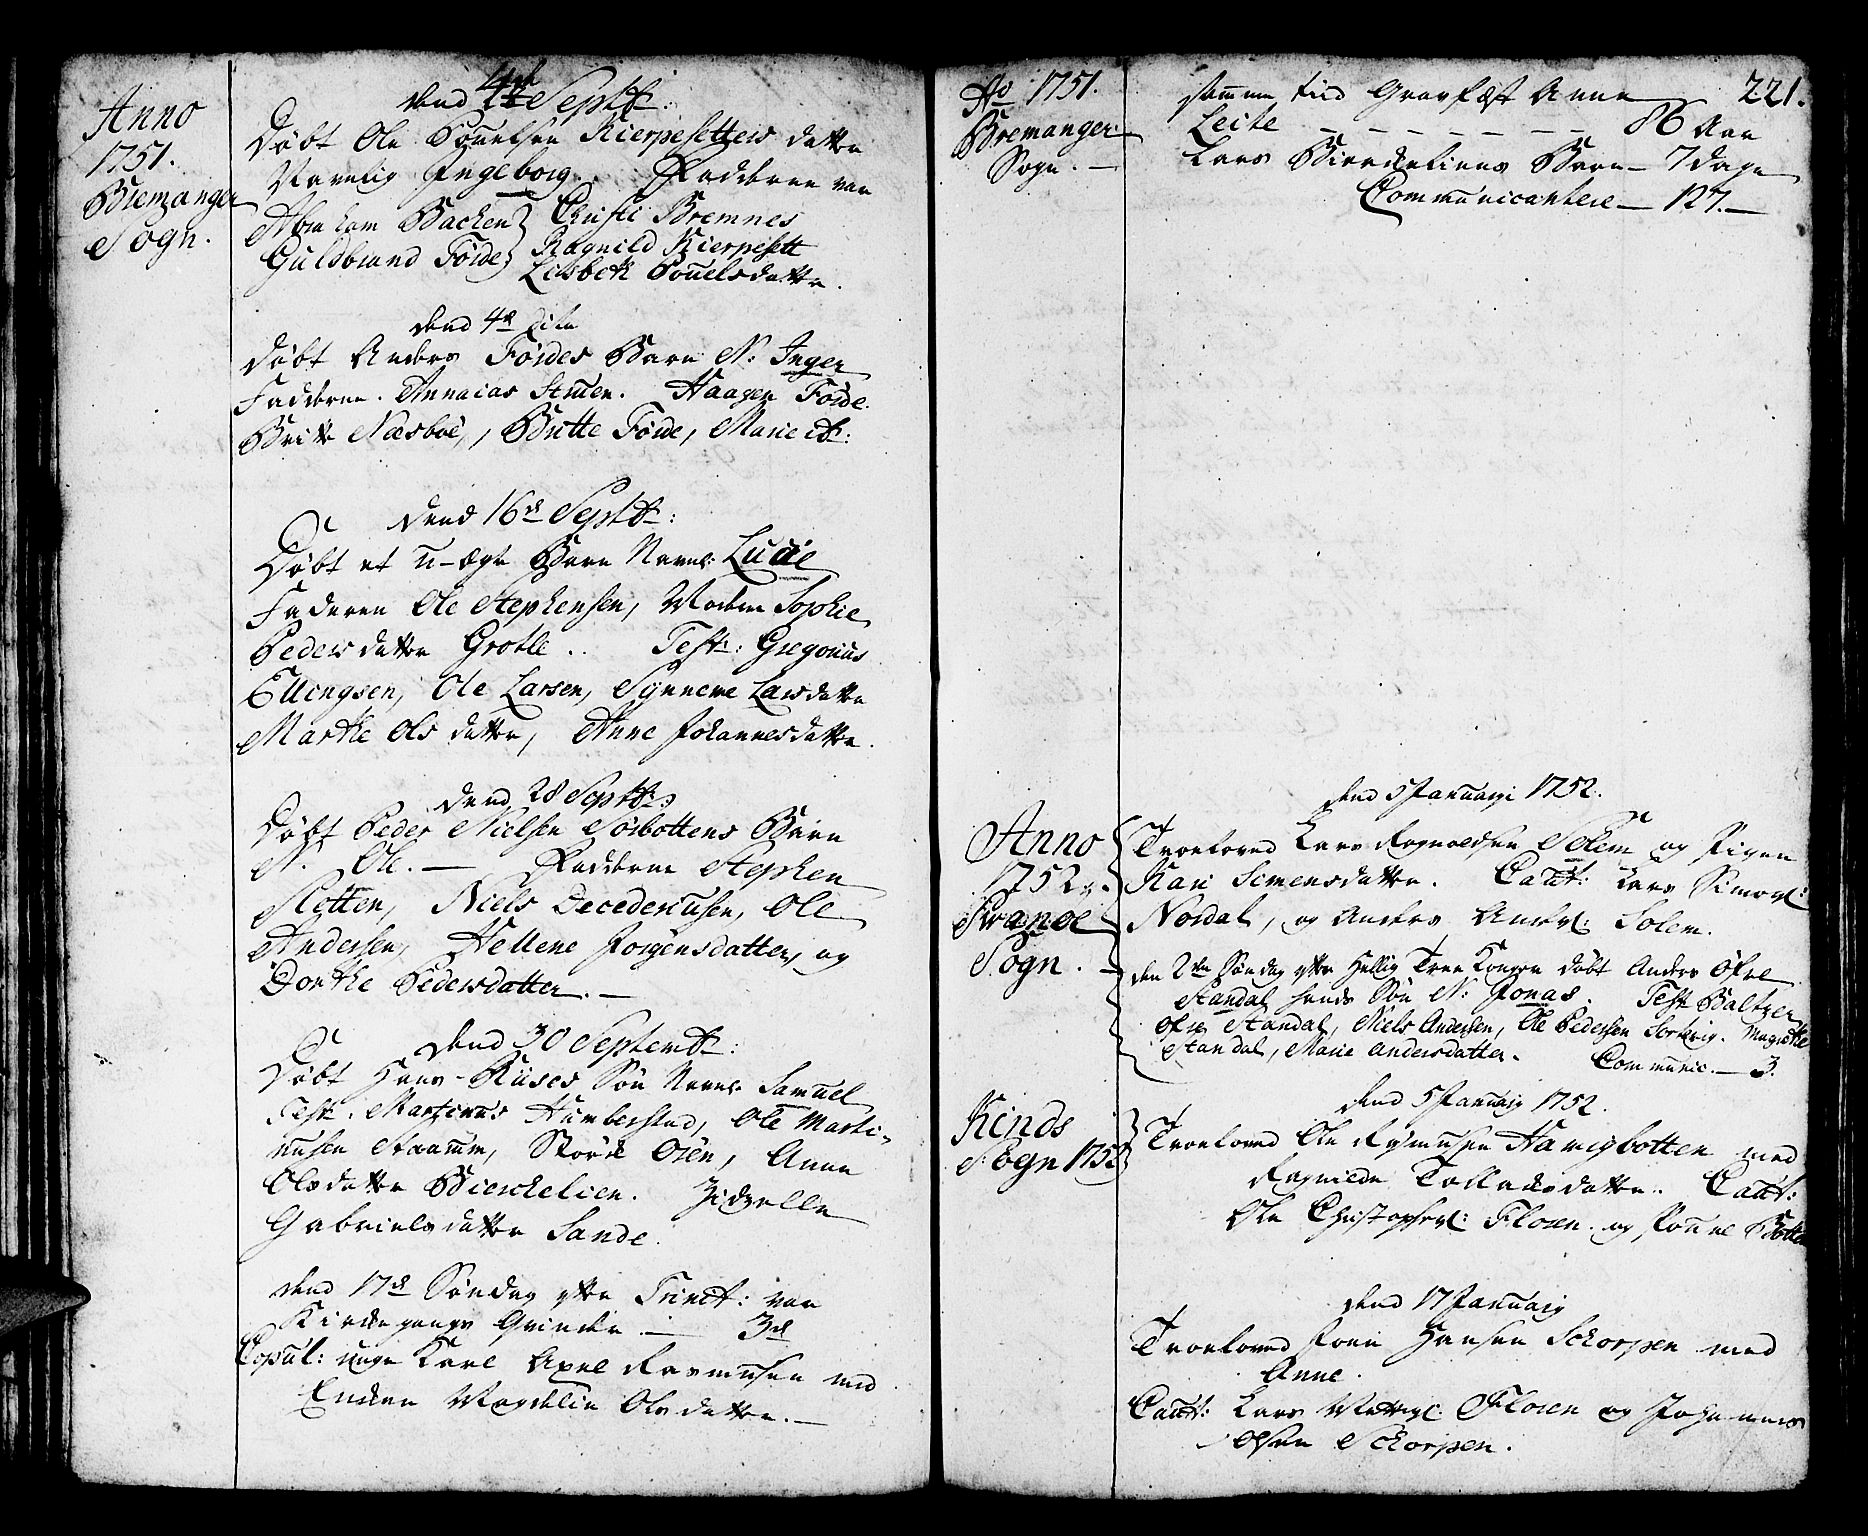 Anno
1751.
Bremanger
Sogn.
dend 4de Septb:
Døbt Ole Pouelsen Kierpesetters datter
Navnlig Ingeborg. Fadderne var
Abraham Bachen } Christi Bremnes
Guldbrand Førde } Ragnild Kierpesett
Lisbeth Pouelsdatter.
dend 4de dito
Døbt Anders Førdes Barn N: Inger
Fadderne. Annaias Stuen. Haagen Førde.
Britte Næsboe, Britte Førde, Marie ib:
Dend 16de Septb:
Døbt et u-ægte Barn Navnl: Lucie
Faderen Ole Stephensen, Moderen Sophie
Pedersdatter Grotle.. Test: Gregorius
Ellingsen, Ole Larsen, Synneve Larsdatter
Marthe Olsdatter, Anne Johannesdatter.
Dend 28 Septb:
Døbt Peder Nielsen Sørbottens Barn
N. Ole. — Fadderne Stephen
Sletten, Niels Decederiusen, Ole
Andersen, Hellene Jørgensdatter, og
Dorthe Pedersdatter. —
Dend 30 Septemb:
Døbt Hans Riises Søn Navnl Samuel
Test. Martinus Humberstad, Ole Marti-
nusen Straumm, Støre Osen, Anne
Olsdatter Bierchelien. Zidzelle
Gabrielsdatter Sande.
dend 17de Søndag efter Trinit: var
Kirkegangs Qvinder — 3de
Copul: unge Karl Axel Rasmusen med
Enken Magdelin Olsdatter. —
Ao 1751.
Bremanger
Sogn. —
221.
samme tiid Gravfæst Anne
Leite — — — — — — 86 Aar
Lars Biercheliens Barn — 7 dage
Communicantere — 127. —
Anno
1752.
Svanøe
Sogn. —
dend 5 Januarii 1752.
Troeloved Lars Rognaldsen Solem og Pigen
Kari Simensdatter. Caut: Lars Simons:
Nordal, og Anders Anders: Solem.
den 2den Søndag efter Hellig Tree Konger døbt Anders Øfre
Standal hands Søn N: Jonas. Test Baltzer
Øfre Standal, Niels Andersen, Ole Pedersen Sortevig. Magrethe
Standal, Marie Andersdatter. Communic. — 3.
Kinds
Sogn 1752
dend 5 Januarij 1752.
Troeloved Ole Rasmusen Havigbotten med
Ragnilde Tollachsdatter. Caut:
Ole Christophers: Floren. og Pouel Botten
dend 17 Januarij
Troeloved Joen Hansen Schorpen med
Anne.
Caut: Lars Floren og Johannes
Olsen Schorpen.